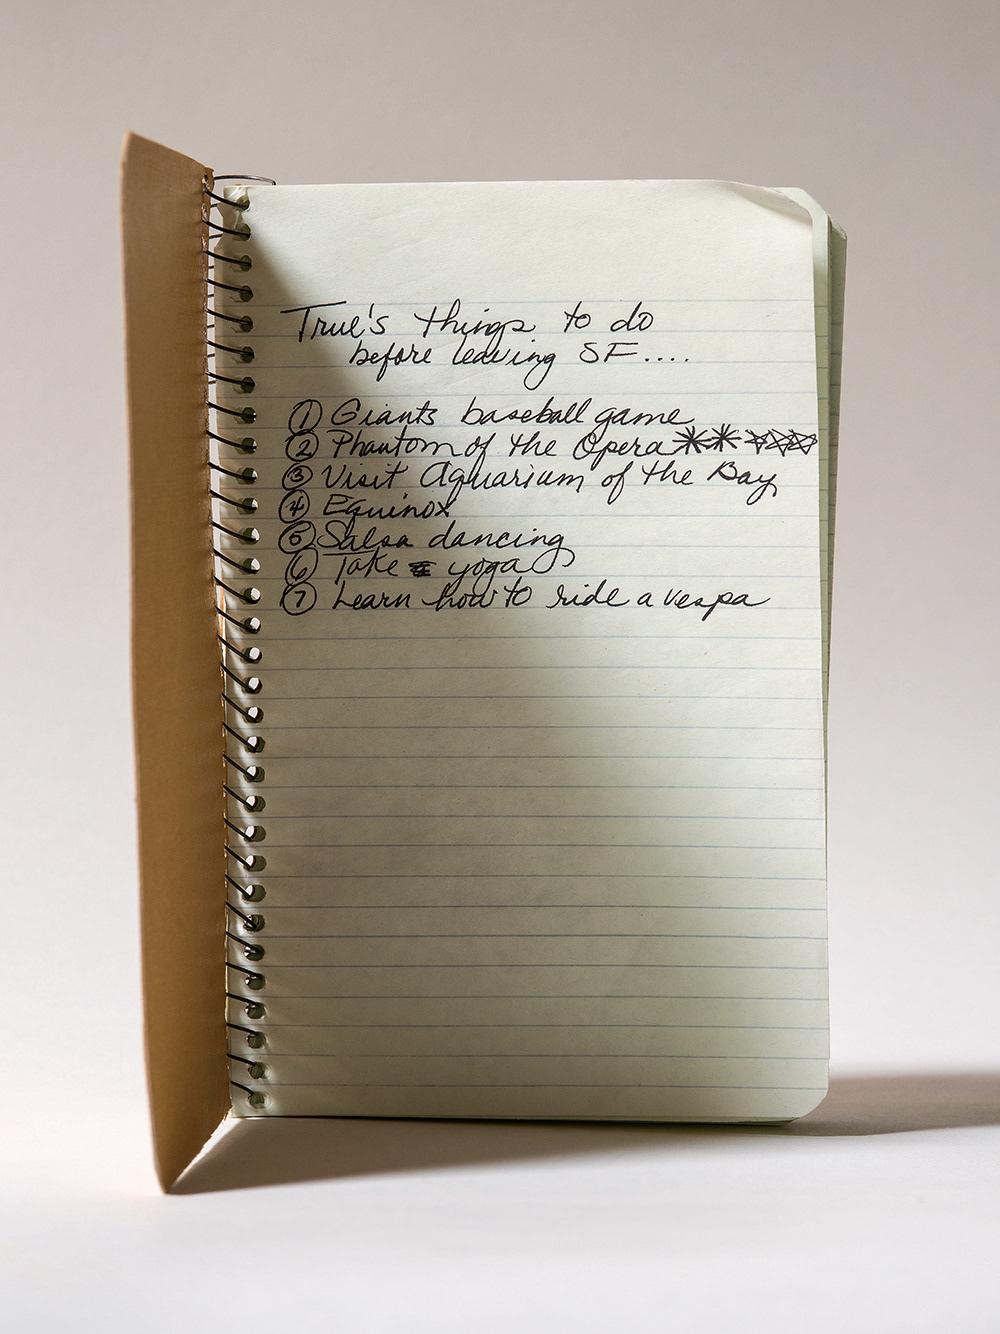 True's things to do
before leaving SF....
① Giants baseball game
② Phantom of the Opera ** ☆☆☆
③ Visit Aquarium of the Bay
④ Equinox
⑤ Salsa dancing
⑥ Take yoga
⑦ Learn how to ride a vespa